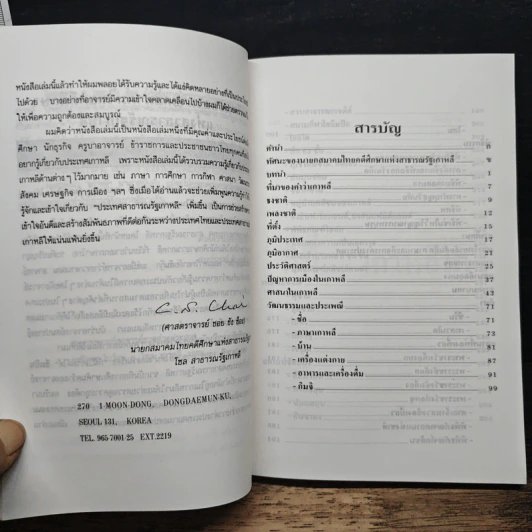 หนังสือเล่มนี้แล้วทำให้ผมพลอยได้รับความรู้และได้แง่คิดหลายอย่างซึ่งเป็นประโยชน์
ไปด้วย บางอย่างที่อาจารย์มีความเข้าใจคลาดเคลื่อนไปบ้างผมก็ได้ช่วย
ให้เพื่อความถูกต้องและสมบูรณ์
ผมคิดว่าหนังสือเล่มนี้เป็นหนังสือเล่มหนึ่งที่มีคุณค่าและประโยชน์
ศึกษา นักธุรกิจ ครูบาอาจารย์ ข้าราชการและประชาชนชาวไทยทุกคน
อยากรู้เกี่ยวกับประเทศเกาหลี เพราะหนังสือเล่มนี้ได้รวบรวมความรู้เกี่ยวกับ
เกาหลีด้านต่างๆ ไว้มากมาย เช่น ภาษา การศึกษา การกีฬา ศาสนา วัฒน
สังคม เศรษฐกิจ การเมือง ฯลฯ ซึ่งเมื่อได้อ่านแล้วจะช่วยเพิ่มพูนความรู้
รู้จักและเข้าใจเกี่ยวกับ "ประเทศสาธารณรัฐเกาหลี" เพิ่มขึ้น เป็นการช่วย
เข้าใจอันดีและสร้างสัมพันธภาพที่ดีต่อกันระหว่างประเทศไทยและประเทศสาธารณ
เกาหลีให้แน่นแฟ้นยิ่งขึ้น
(ศาสตราจารย์ ชอย ชัง ซ็อง)
นายกสมาคมไทยคดีศึกษาแห่งสาธารณรัฐ
โซล สาธารณรัฐเกาหลี
270 1 MOON-DONG, DONGDAEMUN-KU,
SEOUL 131, KOREA
TEL. 965 7001-25 EXT. 2219
สารบัญ
คำนำ ก
ทัศนะของนายกสมาคมไทยคดีศึกษาแห่งสาธารณรัฐเกาหลี
บทนำ 1
ที่มาของคำว่าเกาหลี 7
ธงชาติ 9
เพลงชาติ 12
ที่ตั้ง 15
ภูมิประเทศ 17
ภูมิอากาศ 21
ประวัติศาสตร์ 25
ปัญหาการเมืองในเกาหลี 37
ศาสนาในเกาหลี
วัฒนธรรมและประเพณี 71
- ชื่อ 71
- ภาษาเกาหลี 73
- บ้าน 81
- เครื่องแต่งกาย 87
- อาหารและเครื่องดื่ม 91
- กิมจิ 99